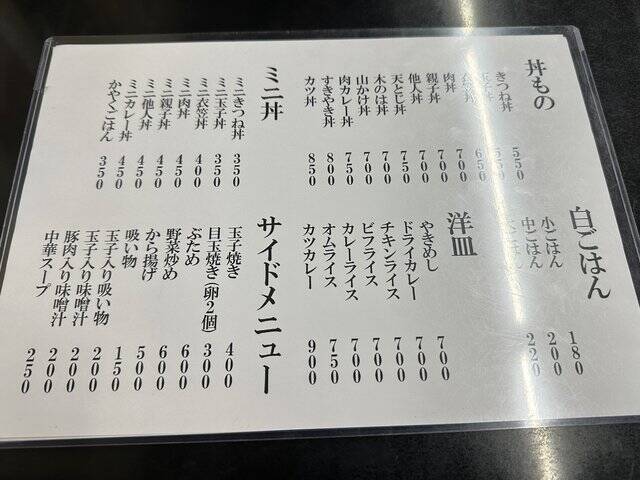 丼もの
きつね丼 550
玉子丼 550
衣笠丼 650
肉丼 700
親子丼 700
他人丼 700
天とじ丼 750
木のは丼 700
山かけ丼 700
肉カレー丼 750
すきやき丼 800
カツ丼 850
ミニ丼
ミニきつね丼 350
ミニ玉子丼 350
ミニ衣笠丼 400
ミニ肉丼 450
ミニ親子丼 450
ミニ他人丼 450
ミニカレー丼 450
かやくごはん 350
白ごはん
小ごはん 180
中ごはん 200
ごはん 220
洋皿
やきめし 700
ドライカレー 700
チキンライス 700
ビフライス 700
カレーライス 700
オムライス 750
カツカレー 900
サイドメニュー
玉子焼き 400
目玉焼き(卵2個) 300
ぶため 600
野菜炒め 600
から揚げ 500
吸い物 150
玉子入り吸い物 200
玉子入り味噌汁 200
豚肉入り味噌汁 200
中華スープ 250